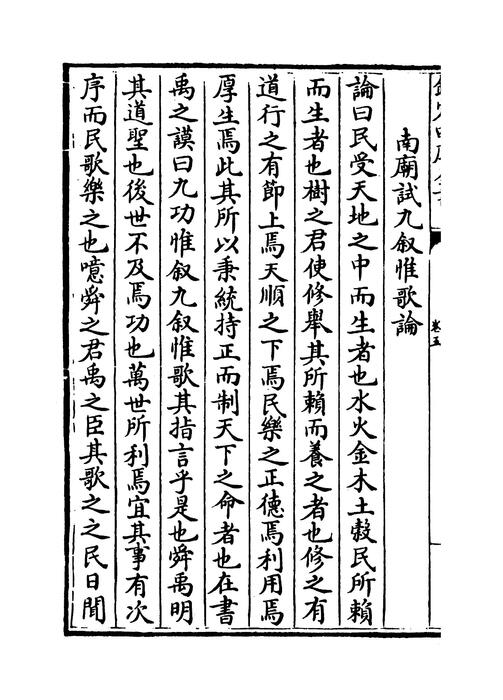 南廟試九叙惟歌論
論曰民受天地之中而生者也水火金木土穀民所賴
而生者也樹之君使修舉其所賴而養之者也修之有
道行之有節上焉天順之下焉民樂之正德焉利用焉
厚生焉此其所以秉統持正而制天下之命者也在書
禹之謨曰九功惟叙九叙惟歌其指言乎是也舜禹明
其道聖也後世不及焉功也萬世所利焉宜其事有次
序而民歌樂之也噫舜之君禹之臣其歌之之民日聞